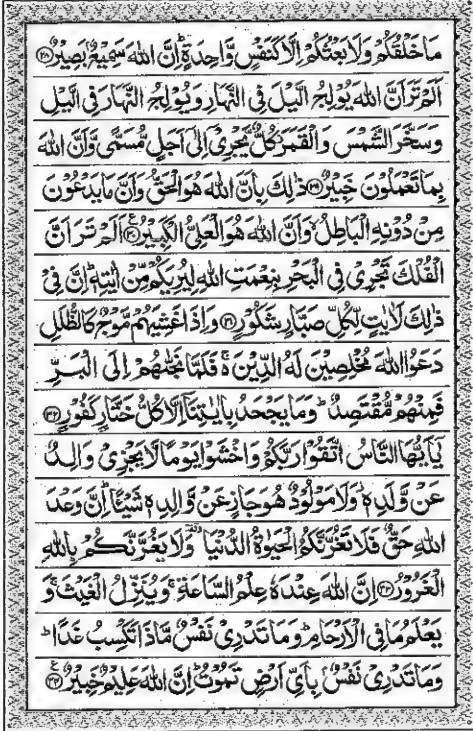 مَا خَلْقُكُمْ وَلَا بَعْثُكُمْ إِلَّا كَنَفْسٍ وَّاحِدَةٍ ؕ اِنَّ اللّٰهَ سَمِيْعٌۢ بَصِيْرٌ ﴿۲۸﴾
اَلَمْ تَرَ اَنَّ اللّٰهَ يُوْلِجُ الَّيْلَ فِى النَّهَارِ وَيُوْلِجُ النَّهَارَ فِى الَّيْلِ
وَسَخَّرَ الشَّمْسَ وَالْقَمَرَ كُلٌّ يَّجْرِىْۤ اِلٰٓى اَجَلٍ مُّسَمًّى وَّاَنَّ اللّٰهَ
بِمَا تَعْمَلُوْنَ خَبِيْرٌ ﴿۲۹﴾ ذٰلِكَ بِاَنَّ اللّٰهَ هُوَ الْحَقُّ وَاَنَّ مَا يَدْعُوْنَ
مِنْ دُوْنِهِ الْبَاطِلُ ۙ وَاَنَّ اللّٰهَ هُوَ الْعَلِىُّ الْكَبِيْرُ ﴿۳۰﴾ ؏ اَلَمْ تَرَ اَنَّ
الْفُلْكَ تَجْرِىْ فِى الْبَحْرِ بِنِعْمَتِ اللّٰهِ لِيُرِيَكُمْ مِّنْ اٰيٰتِهٖ ؕ اِنَّ فِىْ
ذٰلِكَ لَاٰيٰتٍ لِّكُلِّ صَبَّارٍ شَكُوْرٍ ﴿۳۱﴾ وَاِذَا غَشِيَهُمْ مَّوْجٌ كَالظُّلَلِ
دَعَوُا اللّٰهَ مُخْلِصِيْنَ لَهُ الدِّيْنَ ۚ فَلَمَّا نَجّٰهُمْ اِلَى الْبَرِّ
فَمِنْهُمْ مُّقْتَصِدٌ ؕ وَمَا يَجْحَدُ بِاٰيٰتِنَاۤ اِلَّا كُلُّ خَتَّارٍ كَفُوْرٍ ﴿۳۲﴾
يٰۤاَيُّهَا النَّاسُ اتَّقُوْا رَبَّكُمْ وَاخْشَوْا يَوْمًا لَّا يَجْزِىْ وَالِدٌ
عَنْ وَّلَدِهٖ ۫ وَلَا مَوْلُوْدٌ هُوَ جَازٍ عَنْ وَّالِدِهٖ شَيْـًٔا ؕ اِنَّ وَعْدَ
اللّٰهِ حَقٌّ فَلَا تَغُرَّنَّكُمُ الْحَيٰوةُ الدُّنْيَا ۥ وَلَا يَغُرَّنَّكُمْ بِاللّٰهِ
الْغَرُوْرُ ﴿۳۳﴾ اِنَّ اللّٰهَ عِنْدَهٗ عِلْمُ السَّاعَةِ ۚ وَيُنَزِّلُ الْغَيْثَ ۚ وَ
يَعْلَمُ مَا فِى الْاَرْحَامِ ؕ وَمَا تَدْرِىْ نَفْسٌ مَّاذَا تَكْسِبُ غَدًا ؕ
وَمَا تَدْرِىْ نَفْسٌۢ بِاَىِّ اَرْضٍ تَمُوْتُ ؕ اِنَّ اللّٰهَ عَلِيْمٌ خَبِيْرٌ ﴿۳۴﴾ ؏